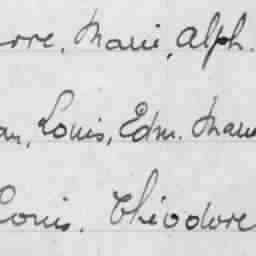 erre, Marie, Alph.
an, Louis, Edm. Marie
Louis. Théodore